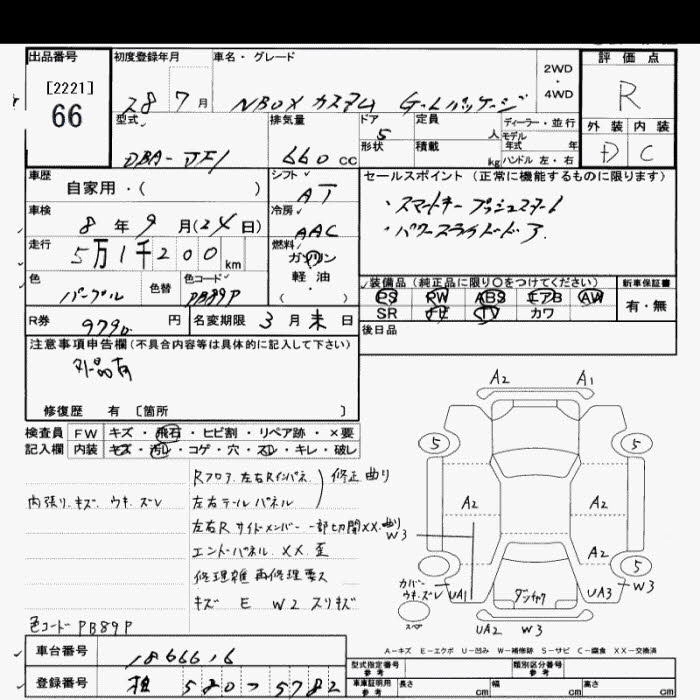 出品番号 初度登録年月 車名・グレード 評価点
[2221]
66
28 7月 NBOX カスタム G-Lパッケージ
2WD・4WD
R
外装 内装
D C
型式 排気量 ドア 定員 ディーラー・並行
DBA-JF1 660 cc 5 人 モデル年式 年
形状 積載 kg ハンドル 左・右
車歴 シフト セールスポイント (正常に機能するものに限ります)
自家用・( ) AT
・スマートキー プッシュスタート
車検 冷房
8年9月(24日) AAC
・パワースライドドア
走行 燃料
5万1千200km ガソリン
色 色替 色コード 軽油
パープル PB89P ・( )
装備品 (純正品に限り〇をつけてください) 新車保証書
PS PW ABS エアB AW 有・無
SR ナビ TV カワ
R券 9790円 名変期限 3月末日
後日品
注意事項申告欄 (不具合内容等は具体的に記入して下さい)
外品有
修復歴 有 [箇所 ]
検査員 FW キズ・飛石・ヒビ割・リペア跡・×要
記入欄 内装 キズ・汚レ・コゲ・穴・スレ・キレ・破レ
内張り キズ ウキ ズレ
Rフロア 左右Rインパネ 修正 曲り
左右テールパネル
左右R サイドメンバー 一部切開XX 曲り
エンドパネル XX 歪
修理雑 再修理要ス
キズ E W2 スリキズ
色コード PB89P
A2 A1
5 5
A2 A2
W3
A2
5
カバー ウキ ズレ UA1 ダンシャク UA3 W3
スペア
UA2 W3
A-キズ E-エクボ U-凹み W-補修跡 S-サビ C-腐食 XX-交換済
車台番号 1866616
登録番号 580 5782
型式指定番号 参考 類別区分番号 参考
車車証明用 参考 長さ cm 幅 cm 高さ cm